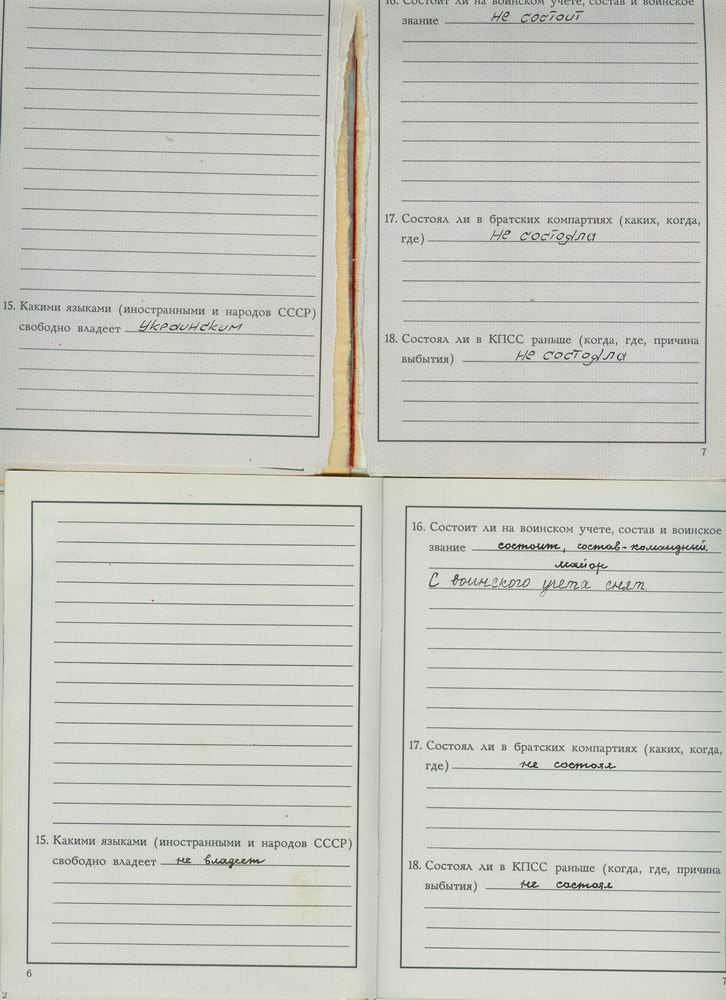 15. Какими языками (иностранными и народов СССР)
свободно владеет украинским
16. Состоит ли на воинском учете, состав и воинское
звание не состоит
17. Состоял ли в братских компартиях (каких, когда,
где) не состояла
18. Состоял ли в КПСС раньше (когда, где, причина
выбытия) не состояла
7
15. Какими языками (иностранными и народов СССР)
свободно владеет не владеет
6
2
16. Состоит ли на воинском учете, состав и воинское
звание состоит, состав-командный.
майор
С воинского учета снят.
17. Состоял ли в братских компартиях (каких, когда,
где) не состоял
18. Состоял ли в КПСС раньше (когда, где, причина
выбытия) не состоял
7